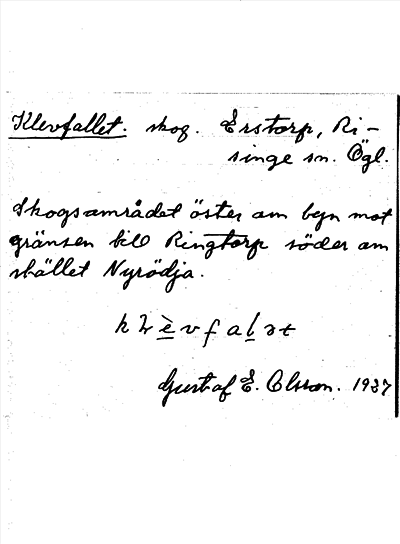 Klevfallet. skog. Erstorp, Ri-
singe sn. Ögl.
Skogsområdet öster om byn mot
gränsen till Ringtorp söder om
stället Nyrödja.
Gustaf E. Olsson. 1937